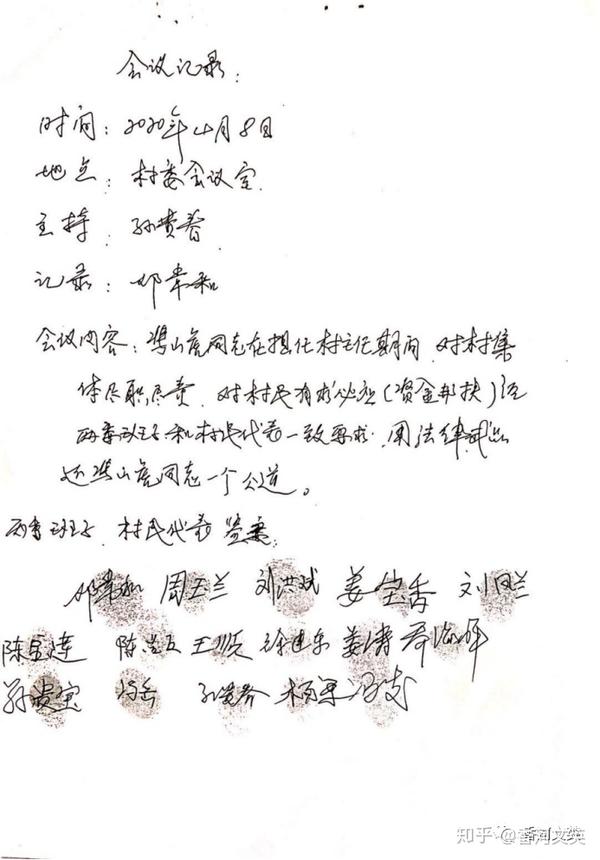 会议记录：
时间：2020年4月8日
地点：村委会议室
主持：孙贵春
记录：邓常和
会议内容：冯山虎同志在担任村主任期间，对村集
体尽职尽责，对村民有求必应（资金帮扶）经
两委班子和村民代表一致要求，用法律武器
还冯山虎同志一个公道。
两委班子、村民代表签章：
邓常和 周玉兰 刘洪斌 姜宝香 刘凤兰
陈宝莲 王顺 徐建东 姜涛
孙贵宝 杨军
知乎 @香河文英